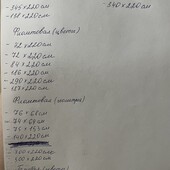 - 145×220см
- 151×220см
- 340×220см
Фиолетовая (цветы)
- 92×220см
- 72×220см
- 84×220см
- 186×220см
- 290×220см
- 157×220см
Фиолетовая
- 76×68см
- 74×68см
- 75×153см
- 140×220см
- 400×220см